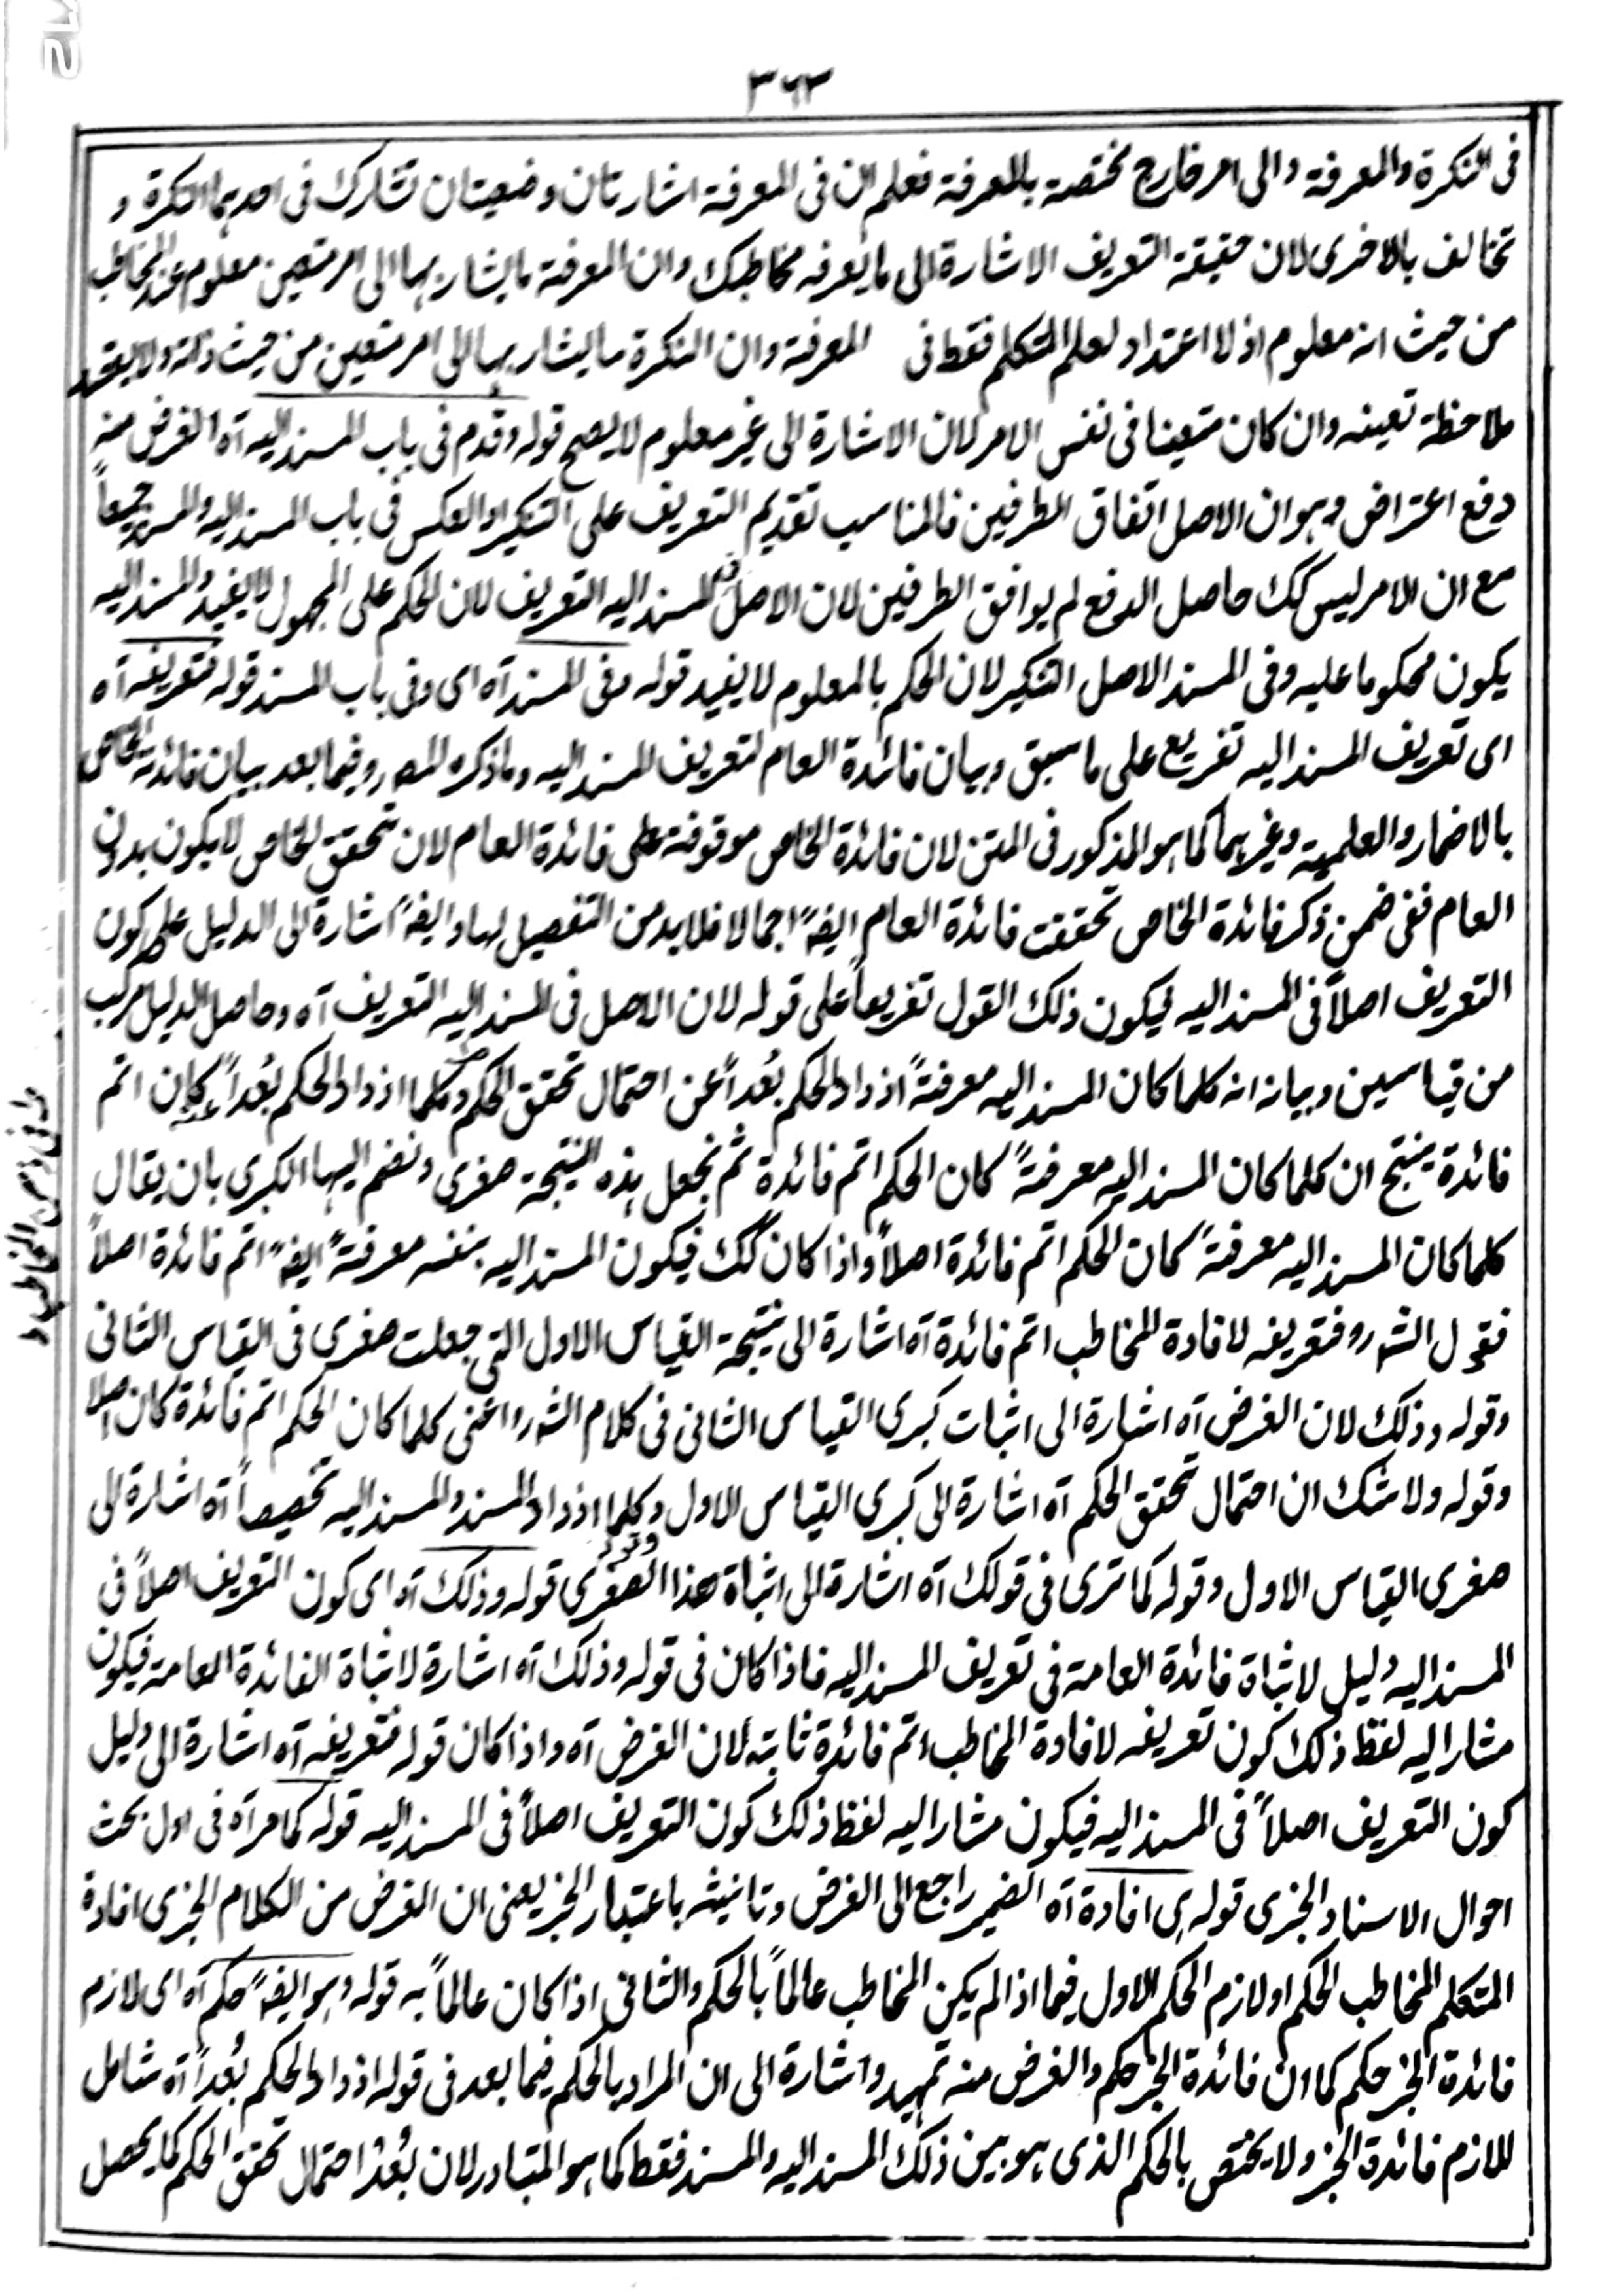 ٣٦٣
فى النكرة والمعرفة والى امر خارج مختصة بالمعرفة فعلم ان فى المعرفة اشارتان وضعيتان تشارك فى احدهما النكرة و
تخالف بالاخرى لان حقيقة التعريف الاشارة الى ما يعرفه مخاطبك وان المعرفة ما يشار بها الى امر متعين معلوم عند المخاطب
من حيث انه معلوم اذ لا اعتداد لعلم المتكلم فقط فى المعرفة وان النكرة ما يشار بها الى امر متعين من حيث ذاته ولا يقصد
ملاحظة تعينه وان كان متعينا فى نفس الامر لان الاشارة الى غير معلوم لا يصح قوله وقدم فى باب المسند اليه آه الغرض منه
دفع اعتراض وهو ان الاصل اتفاق الطرفين فالمناسب تقديم التعريف على التنكير او العكس فى باب المسند اليه والمسند جميعاً
مع ان الامر ليس كك حاصل الدفع لم يوافق الطرفين لان الاصل فى المسند اليه التعريف لان الحكم على المجهول لا يفيد والمسند اليه
يكون محكوما عليه وفى المسند الاصل التنكير لان الحكم بالمعلوم لا يفيد قوله وفى المسند آه اى وفى باب المسند قوله فتعريفه آه
اى تعريف المسند اليه تفريع على ما سبق وبيان فائدة العام لتعريف المسند اليه وما ذكره المصر وفيما بعد بيان فائدته الخاص
بالاضمار والعلمية وغيرهما كما هو المذكور فى المتن لان فائدة الخاص موقوفة على فائدة العام لان تحقق الخاص لا يكون بدون
العام ففى ضمن ذكر فائدة الخاص تحققت فائدة العام ايضً اجمالا فلا بد من التفصيل لها وايضً اشارة الى الدليل على كون
التعريف اصلاً فى المسند اليه ليكون ذلك القول تفريعاً على قوله لان الاصل فى المسند اليه التعريف آه وحاصل الدليل مركب
من قياسين وبيانه انه كلما كان المسند اليه معرفةً ازداد الحكم بُعداً عن احتمال تحقق الحكم وكلما ازداد الحكم بُعداً كان اتم
فائدة ينتج ان كلما كان المسند اليه معرفةً كان الحكم اتم فائدة ثم نجعل هذه النتيجة صغرى ونضم اليها الكبرى بان يقال
كلما كان المسند اليه معرفةً كان الحكم اتم فائدة اصلاً واذا كان كك فيكون المسند اليه بنفسه معرفةً ايضً اتم فائدة اصلاً
فقول الشر وفتعريفه لافادة المخاطب اتم فائدة آه اشارة الى نتيجة القياس الاول التى جعلت صغرى فى القياس الثانى
وقوله وذلك لان الغرض آه اشارة الى اثبات كبرى القياس الثانى فى كلام الشر واعنى كلما كان الحكم اتم فائدة كان اصلا
وقوله ولا شك ان احتمال تحقق الحكم آه اشارة الى كبرى القياس الاول وكلما ازداد المسند والمسند اليه تخصيصاً آه اشارة الى
صغرى القياس الاول وقوله كما ترى فى قولك آه اشارة الى اثباة هذا الصغرى قوله وذلك آه اى كون التعريف اصلاً فى
المسند اليه دليل لاثباة فائدة العامة فى تعريف المسند اليه فاذا كان فى قوله وذلك آه اشارة لاثباة الفائدة العامة فيكون
مشارا اليه لفظ ذلك كون تعريفه لافادة المخاطب اتم فائدة ثابتة لان الغرض آه واذا كان قوله فتعريفه آه اشارة الى دليل
كون التعريف اصلاً فى المسند اليه فيكون مشارا اليه لفظ ذلك كون التعريف اصلاً فى المسند اليه قوله كما مر آه فى اول بحث
احوال الاسناد الخبرى قوله هى افادة آه الضمير راجع الى الغرض وتانيثه باعتبار الخبر يعنى ان الغرض من الكلام الخبرى افادة
المتكلم المخاطب الحكم او لازم الحكم الاول فيما اذا لم يكن المخاطب عالماً بالحكم والثانى اذا كان عالماً به قوله وهو ايضً حكم آه اى لازم
فائدة الخبر حكم كما ان فائدة الخبر حكم والغرض منه تمهيد واشارة الى ان المراد بالحكم فيما بعد فى قوله ازداد الحكم بُعداً آه شامل
للازم فائدة الخبر ولا يختص بالحكم الذى هو بين ذلك المسند اليه والمسند فقط كما هو المتبادر لان بُعد احتمال تحقق الحكم كما يحصل